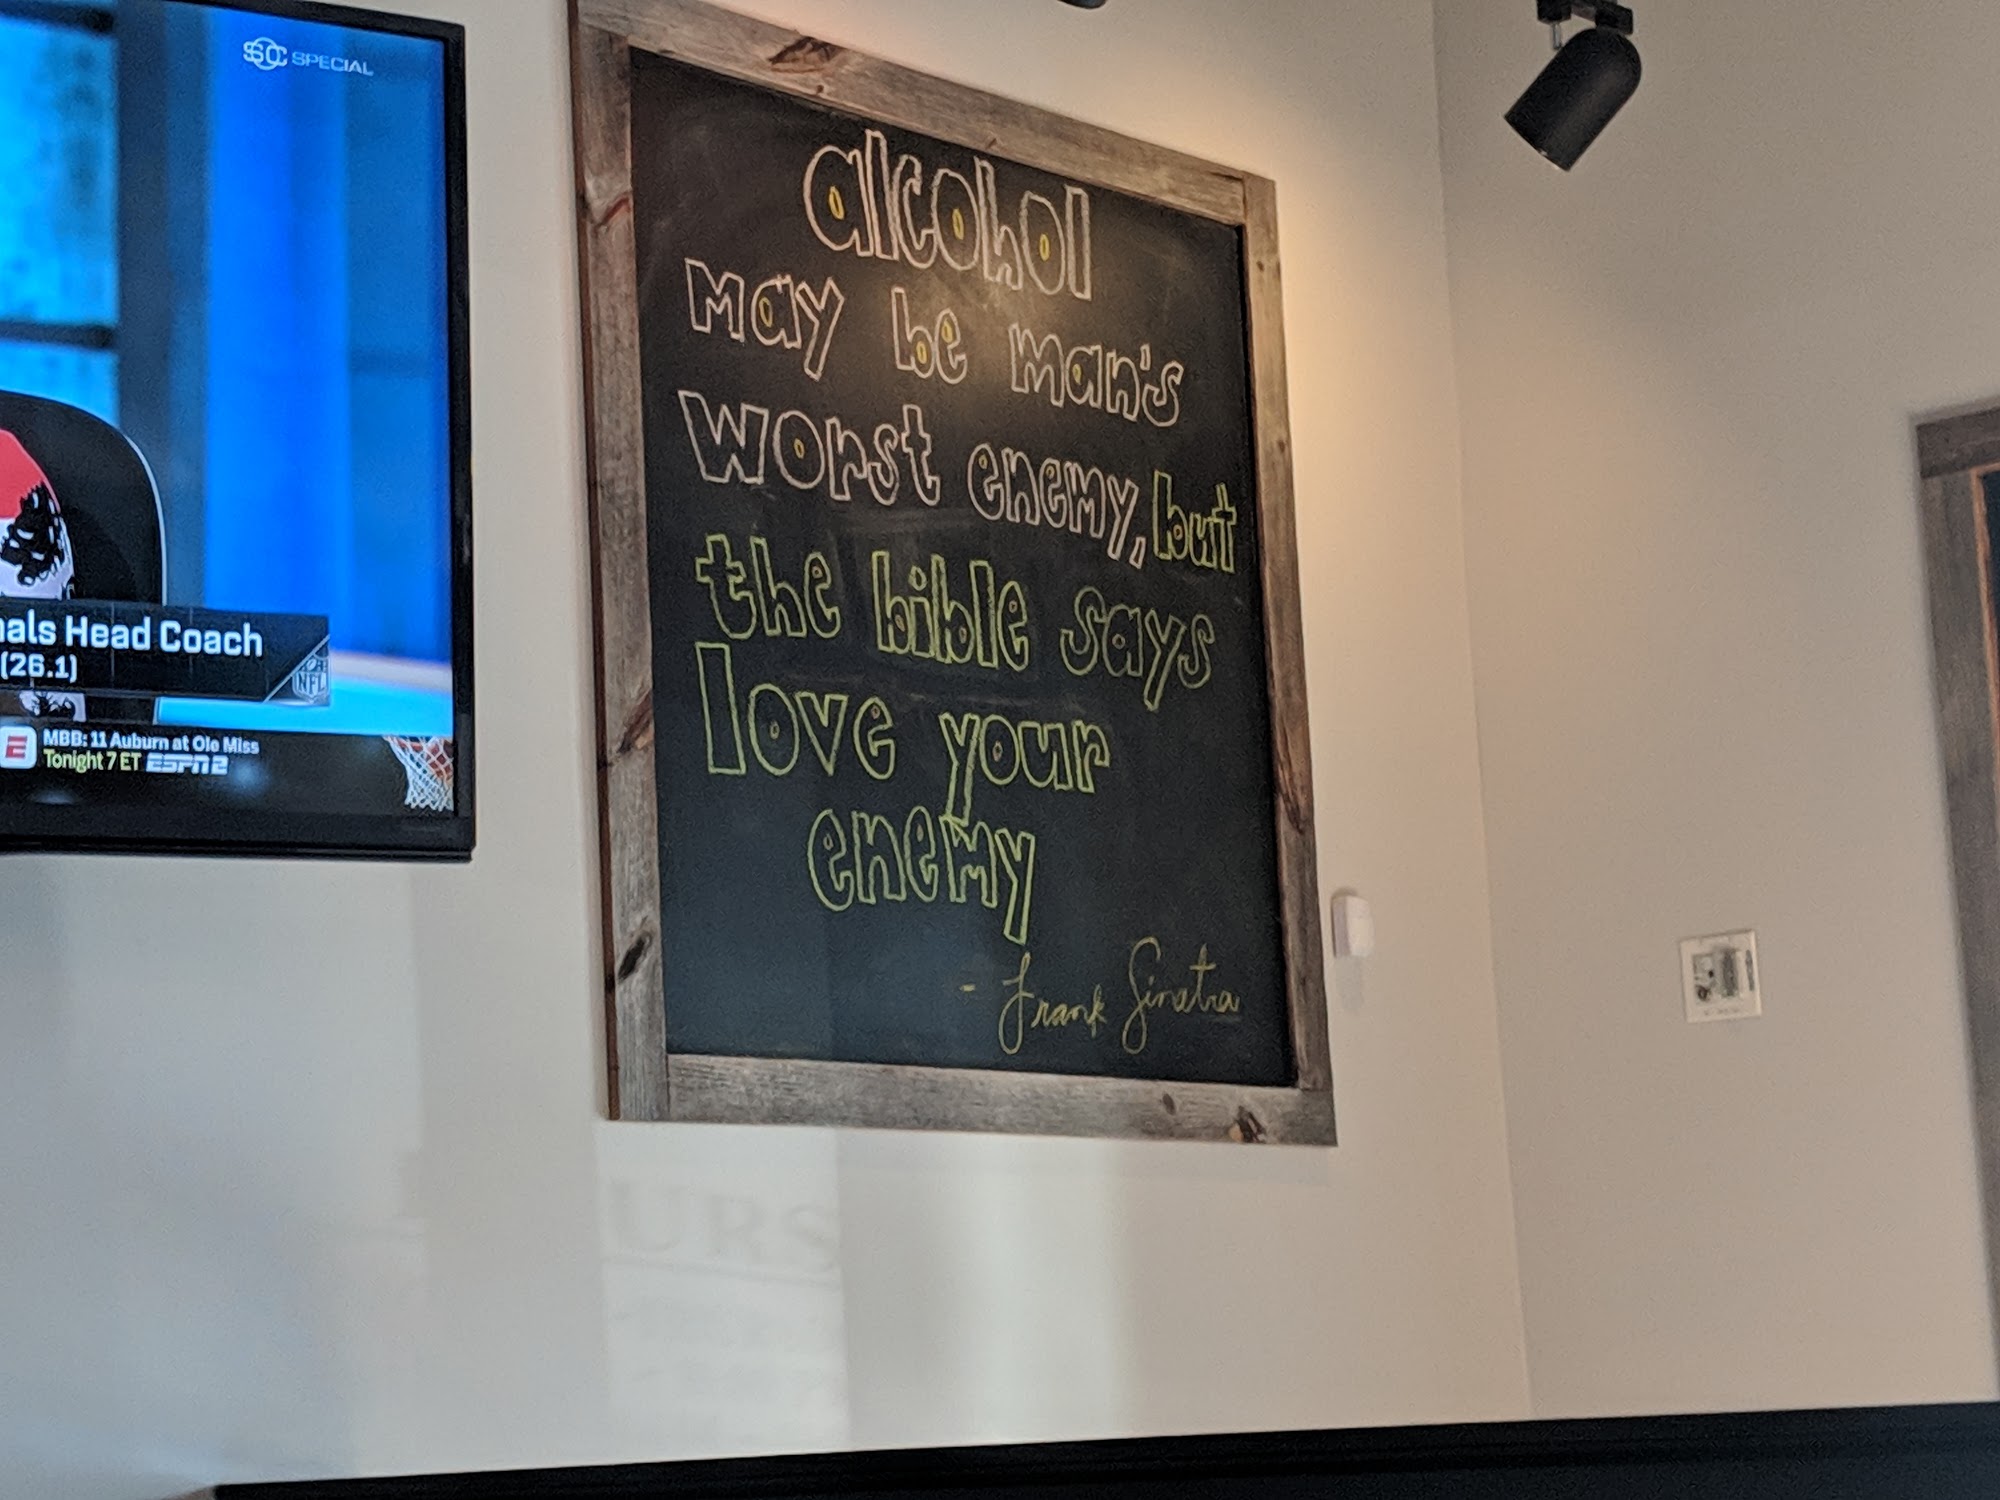 SC SPECIAL
nals Head Coach
(26.1)
NFL
MBB: 11 Auburn at Ole Miss
Tonight 7 ET ESPN2
alcohol
may be man's
worst enemy, but
the bible says
love your
enemy
- Frank Sinatra
URS